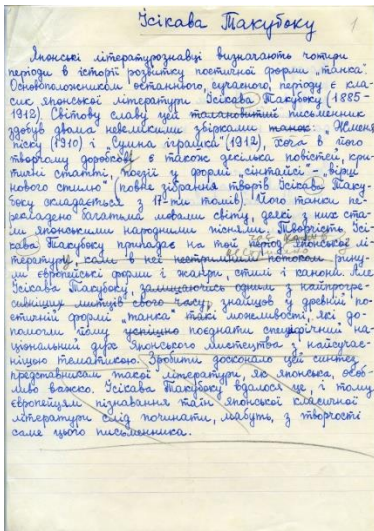 Ісікава Такубоку
1
Японські літературознавці визначають чотири
періоди в історії розвитку поетичної форми „танка".
Основоположником останнього, сучасного, періоду є кла-
сик японської літератури Ісікава Такубоку (1885-
1912). Світову славу цей талановитий письменник
здобув двома невеликими збірками танок: „Жменя
піску" (1910) і „Сумна іграшка" (1912), хоча в його
творчому доробкові є також декілька повістей, кри-
тичні статті, поезії у формі „сінтайсі" – „вірші
нового стилю" (повне зібрання творів Ісікава Таку-
боку складається з 17-ти томів). Його танки пе-
рекладено багатьма мовами світу, деякі з них ста-
ли японськими народними піснями. Творчість Ісі-
кава Такубоку припадає на той період японської лі-
тератури, коли в неї нестримним потоком рину-
ли європейські форми і жанри, стилі і канони. Але
Ісікава Такубоку, залишаючись одним з найпрогре-
сивніших митців свого часу, знайшов у древній по-
етичній формі „танка" такі можливості, які до-
помогли йому успішно поєднати специфічний на-
ціональний дух японського мистецтва з найсучас-
нішою тематикою. Зробити досконало цей синтез
представникам такої літератури, як японська, особ-
ливо важко. Ісікава Такубоку вдалося це, і тому
європейцям пізнавання таїн японської класичної
літератури слід починати, мабуть, з творчості
саме цього письменника.